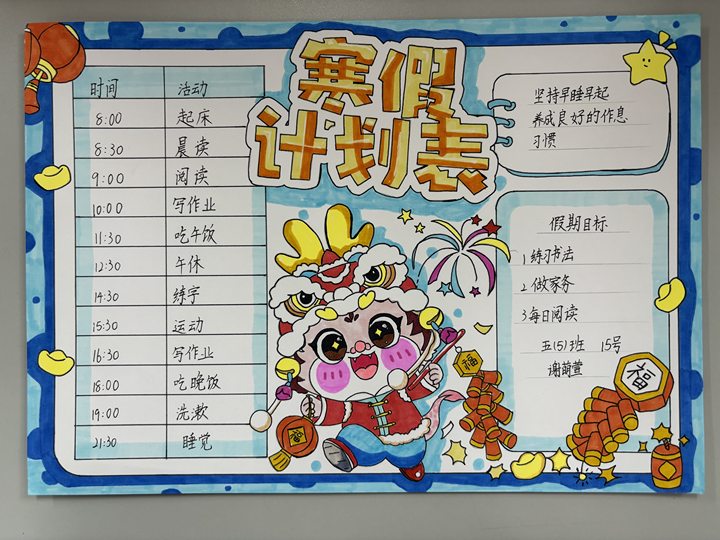 寒假
计划表
时间 活动
8:00 起床
8:30 晨读
9:00 阅读
10:00 写作业
11:30 吃午饭
12:30 午休
14:30 练字
15:30 运动
16:30 写作业
18:00 吃晚饭
19:00 洗漱
21:30 睡觉
坚持早睡早起
养成良好的作息
习惯
假期目标
1 练习书法
2 做家务
3 每日阅读
五(5)班 15号
谢萌萱
福
福
福